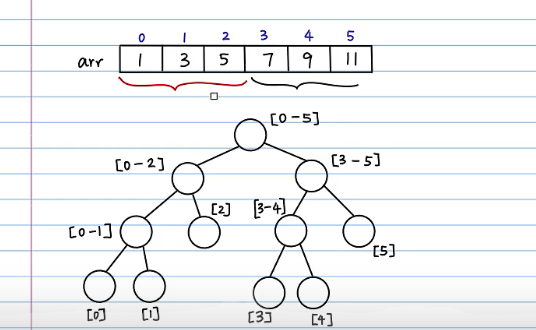 0 1 2 3 4 5
arr 1 3 5 7 9 11
[0-5]
[0-2] [3-5]
[0-1] [2] [3-4] [5]
[0] [1] [3] [4]